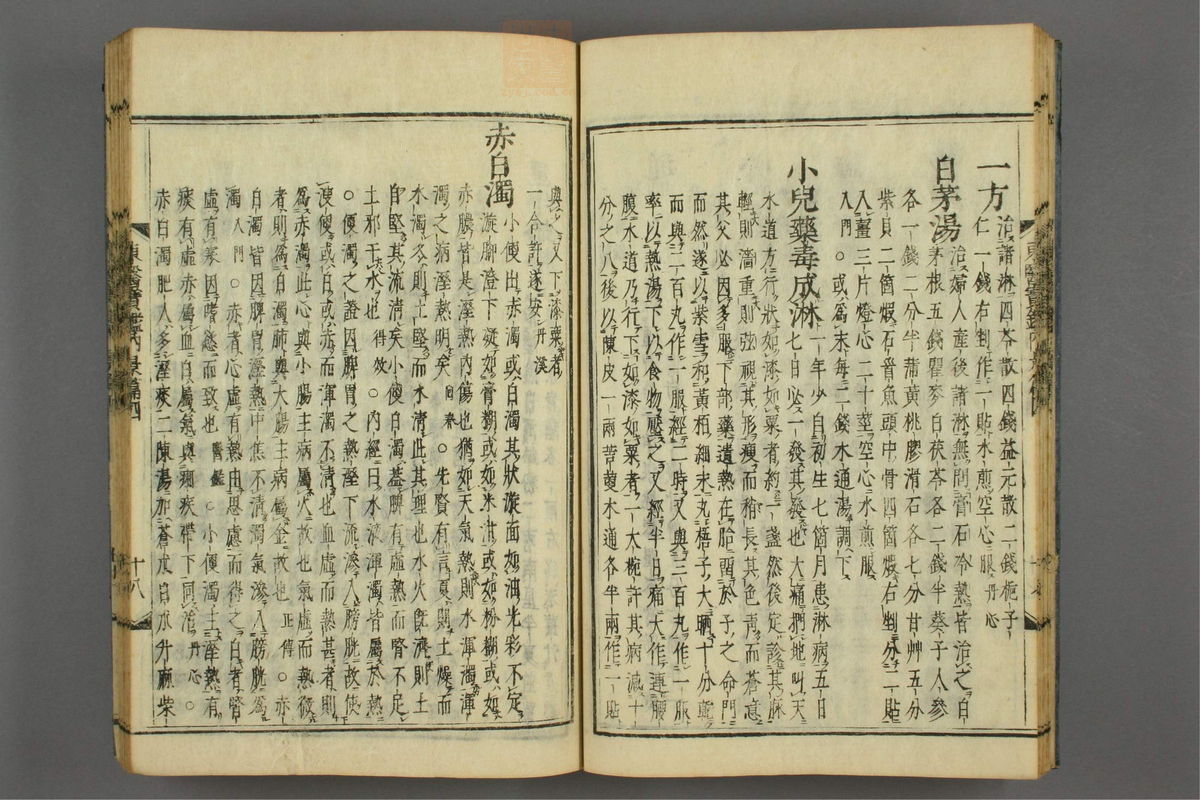 一方治諸淋四苓散四錢益元散二錢梔子
仁一錢右剉作一貼水煎空心服丹心
白茅湯治婦人産後諸淋無問膏石冷熱皆治之白
茅根五錢瞿麥白茯苓各二錢半葵子人參
各一錢二分半蒲黃桃膠滑石各七分甘艸五分
紫貝二箇煅石首魚頭中骨四箇煅右剉分二貼
入薑三片燈心二十莖空心水煎服
入門○或爲末每二錢木通湯調下
小兒藥毒成淋一年少自初生七箇月患淋病五日
七日必一發其發也大痛捫地叫天
水道方行狀如漆如粟者約一盞然後定診其脉
輕則濇重則弦視其形瘦而稍長其色靑而蒼意
其父必因多服下部藥遺熱在胎留於子之命門
而然遂以紫雪和黃栢細末丸梧子大晒十分乾
而與二百丸作一服經二時又與三百丸作一服
率以熱湯下以食物壓之又經半日痛大作連腰
膜水道乃行下如漆如粟者一大椀許其病減十
分之八後以陳皮一兩苦莄木通各半兩作一貼
東醫寶鑑內景篇四
與之又下漆粟者
一合許遂安丹溪
赤白濁小便出赤濁或白濁其狀漩面如油光彩不定
漩脚澄下凝如膏糊或如米泔或如粉糊或如
赤膿皆是溼熱內傷也猶如天氣熱則水渾濁渾
濁之病溼熱明矣回春○先賢有言夏則土燥而
水濁冬則土堅而水淸此其理也水火旣濟則土
自堅其流淸矣小便白濁盖脾有虛熱而腎不足
土邪干水也得效○內經曰水液渾濁皆屬於熱
○便濁之證因脾胃之熱溼下流滲入膀胱故使
溲便或白或赤而渾濁不淸也血虛而熱甚者則
爲赤濁此心與小腸主病屬火故也氣虛而熱微
者則爲白濁肺與大腸主病屬金故也正傳○赤
白濁皆因脾胃溼熱中焦不淸濁氣滲入膀胱爲
濁入門○赤者心虛有熱由思慮而得之白者腎
虛有寒因嗜慾而致也醫鑑○小便濁主溼熱有
痰有虛赤屬血白屬氣與痢疾帶下同治丹心○
赤白濁肥人多溼痰二陳湯加蒼朮白朮升麻柴
十八